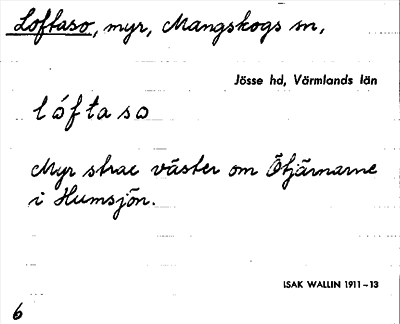 Loftaso, myr, Mangskogs sn,
Jösse hd, Värmlands län
lóftaso
Myr strax väster om Ötjärnarne
i Humsjön.
ISAK WALLIN 1911-13
6